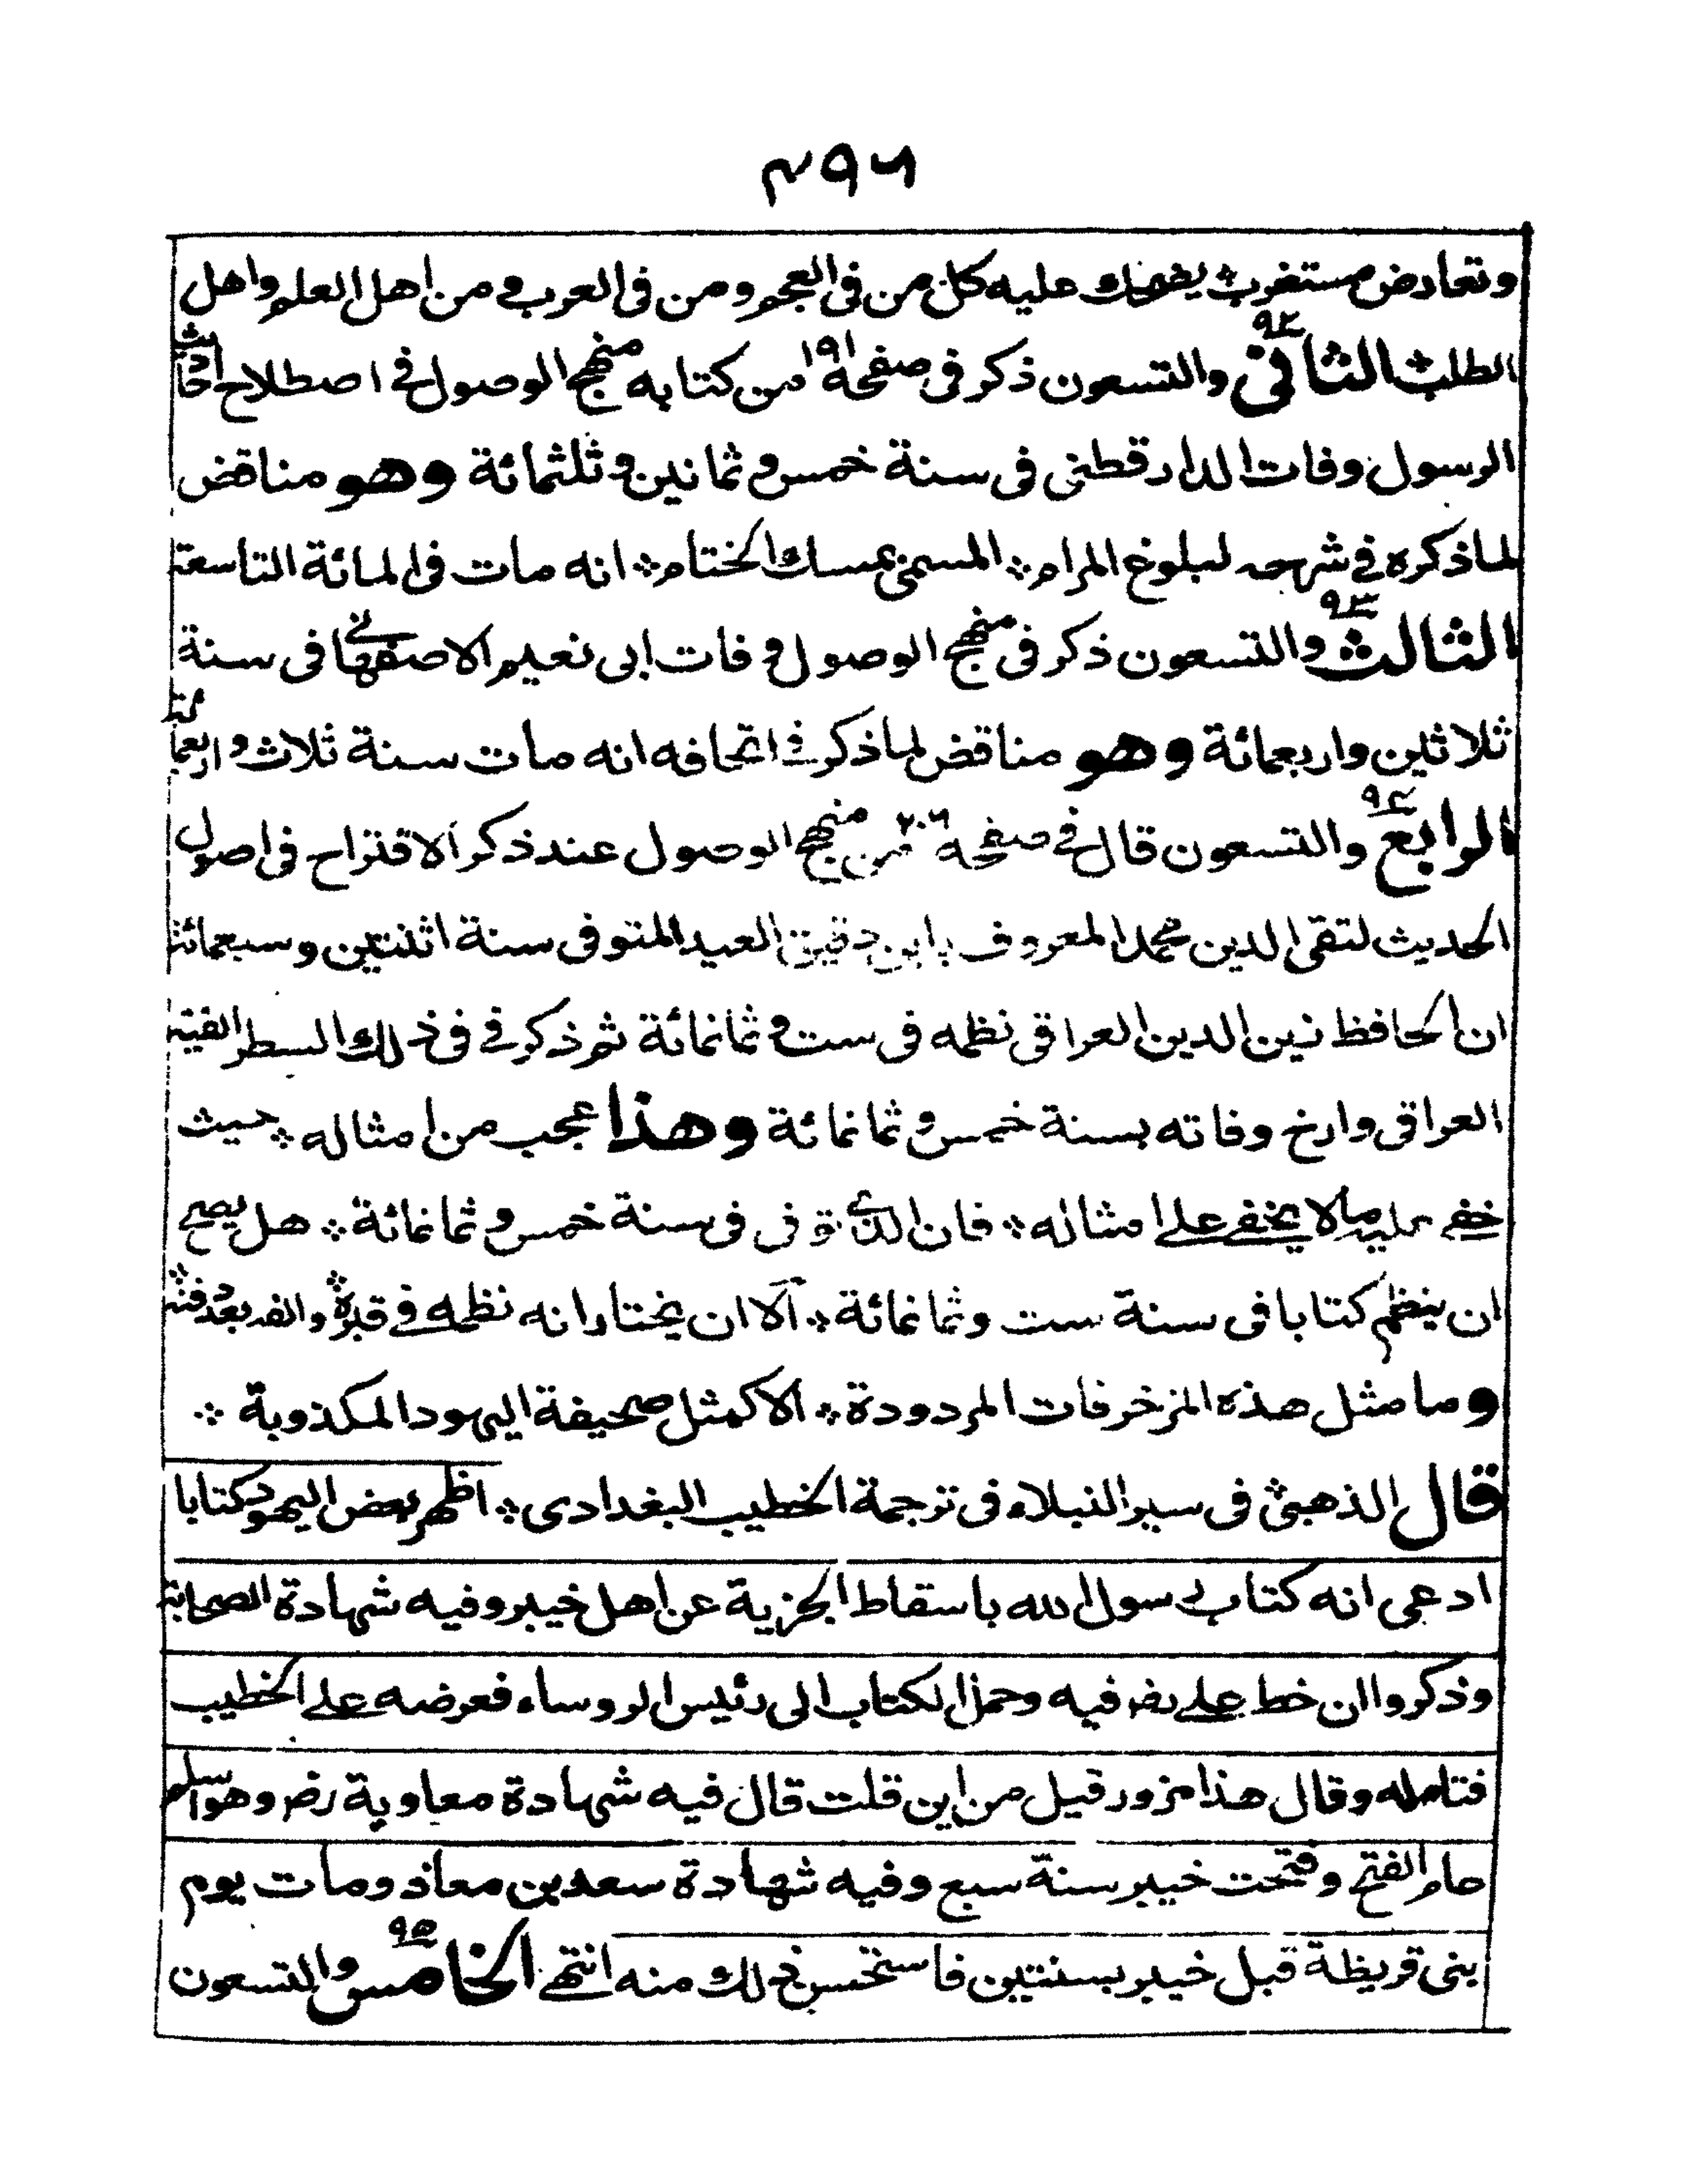 ٣٩٦
وتعارض مستغرب ٭ يضحك عليه كل من فى العجم ومن فى العرب ٭ من اهل العلم واهل
الطلب ٭ الثانى ٩٢ والتسعون ذكر فى صفحة ١٩١ من كتابه منهج الوصول فى اصطلاح احاديث
الرسول وفات الدارقطنى فى سنة خمس وثمانين وثلثمائة وهو مناقض
لما ذكره فى شرحه لبلوغ المرام ٭ المسمى بمسك الختام ٭ انه مات فى المائة التاسعة
الثالث ٩٣ والتسعون ذكر فى منهج الوصول وفات ابى نعيم الاصفهانى فى سنة
ثلاثين واربعمائة وهو مناقض لما ذكر فى اتحافه انه مات سنة ثلاث واربعمائة
الرابع ٩٤ والتسعون قال فى صفحة ٢٠٦ من منهج الوصول عند ذكر الاقتراح فى اصول
الحديث لتقى الدين محمد المعروف بابن دقيق العيد المتوفى سنة اثنتين وسبعمائة
ان الحافظ زين الدين العراقى نظمه فى ست وثمانمائة ثم ذكر فى فى ذلك السطر الفية
العراقى وارخ وفاته بسنة خمس وثمانمائة وهذا عجب من امثاله ٭ حيث
خفى عليه ما لا يخفى على امثاله ٭ فان الذى توفى فى سنة خمس وثمانمائة ٭ هل يصح
ان ينظم كتابا فى سنة ست وثمانمائة ٭ الا ان يختار انه نظمه فى قبره ٭ والفه بعد دفنه ٭
وما مثل هذه المزخرفات المردودة ٭ الا كمثل صحيفة اليهود المكذوبة ٭
قال الذهبى فى سير النبلاء فى ترجمة الخطيب البغدادى ٭ اظهر بعض اليهود كتابا
ادعى انه كتاب رسول الله باسقاط الجزية عن اهل خيبر وفيه شهادة الصحابة
وذكروا ان خط على رض فيه وحمل الكتاب الى رئيس الروساء فعرضه على الخطيب
فتامله وقال هذا مزور قيل من اين قلت قال فيه شهادة معاوية رض وهو اسلم
عام الفتح وفتحت خيبر سنة سبع وفيه شهادة سعد بن معاذ ومات يوم
بنى قريظة قبل خيبر بسنتين فاستحسن ذلك منه انتهى الخامس ٩٥ والتسعون